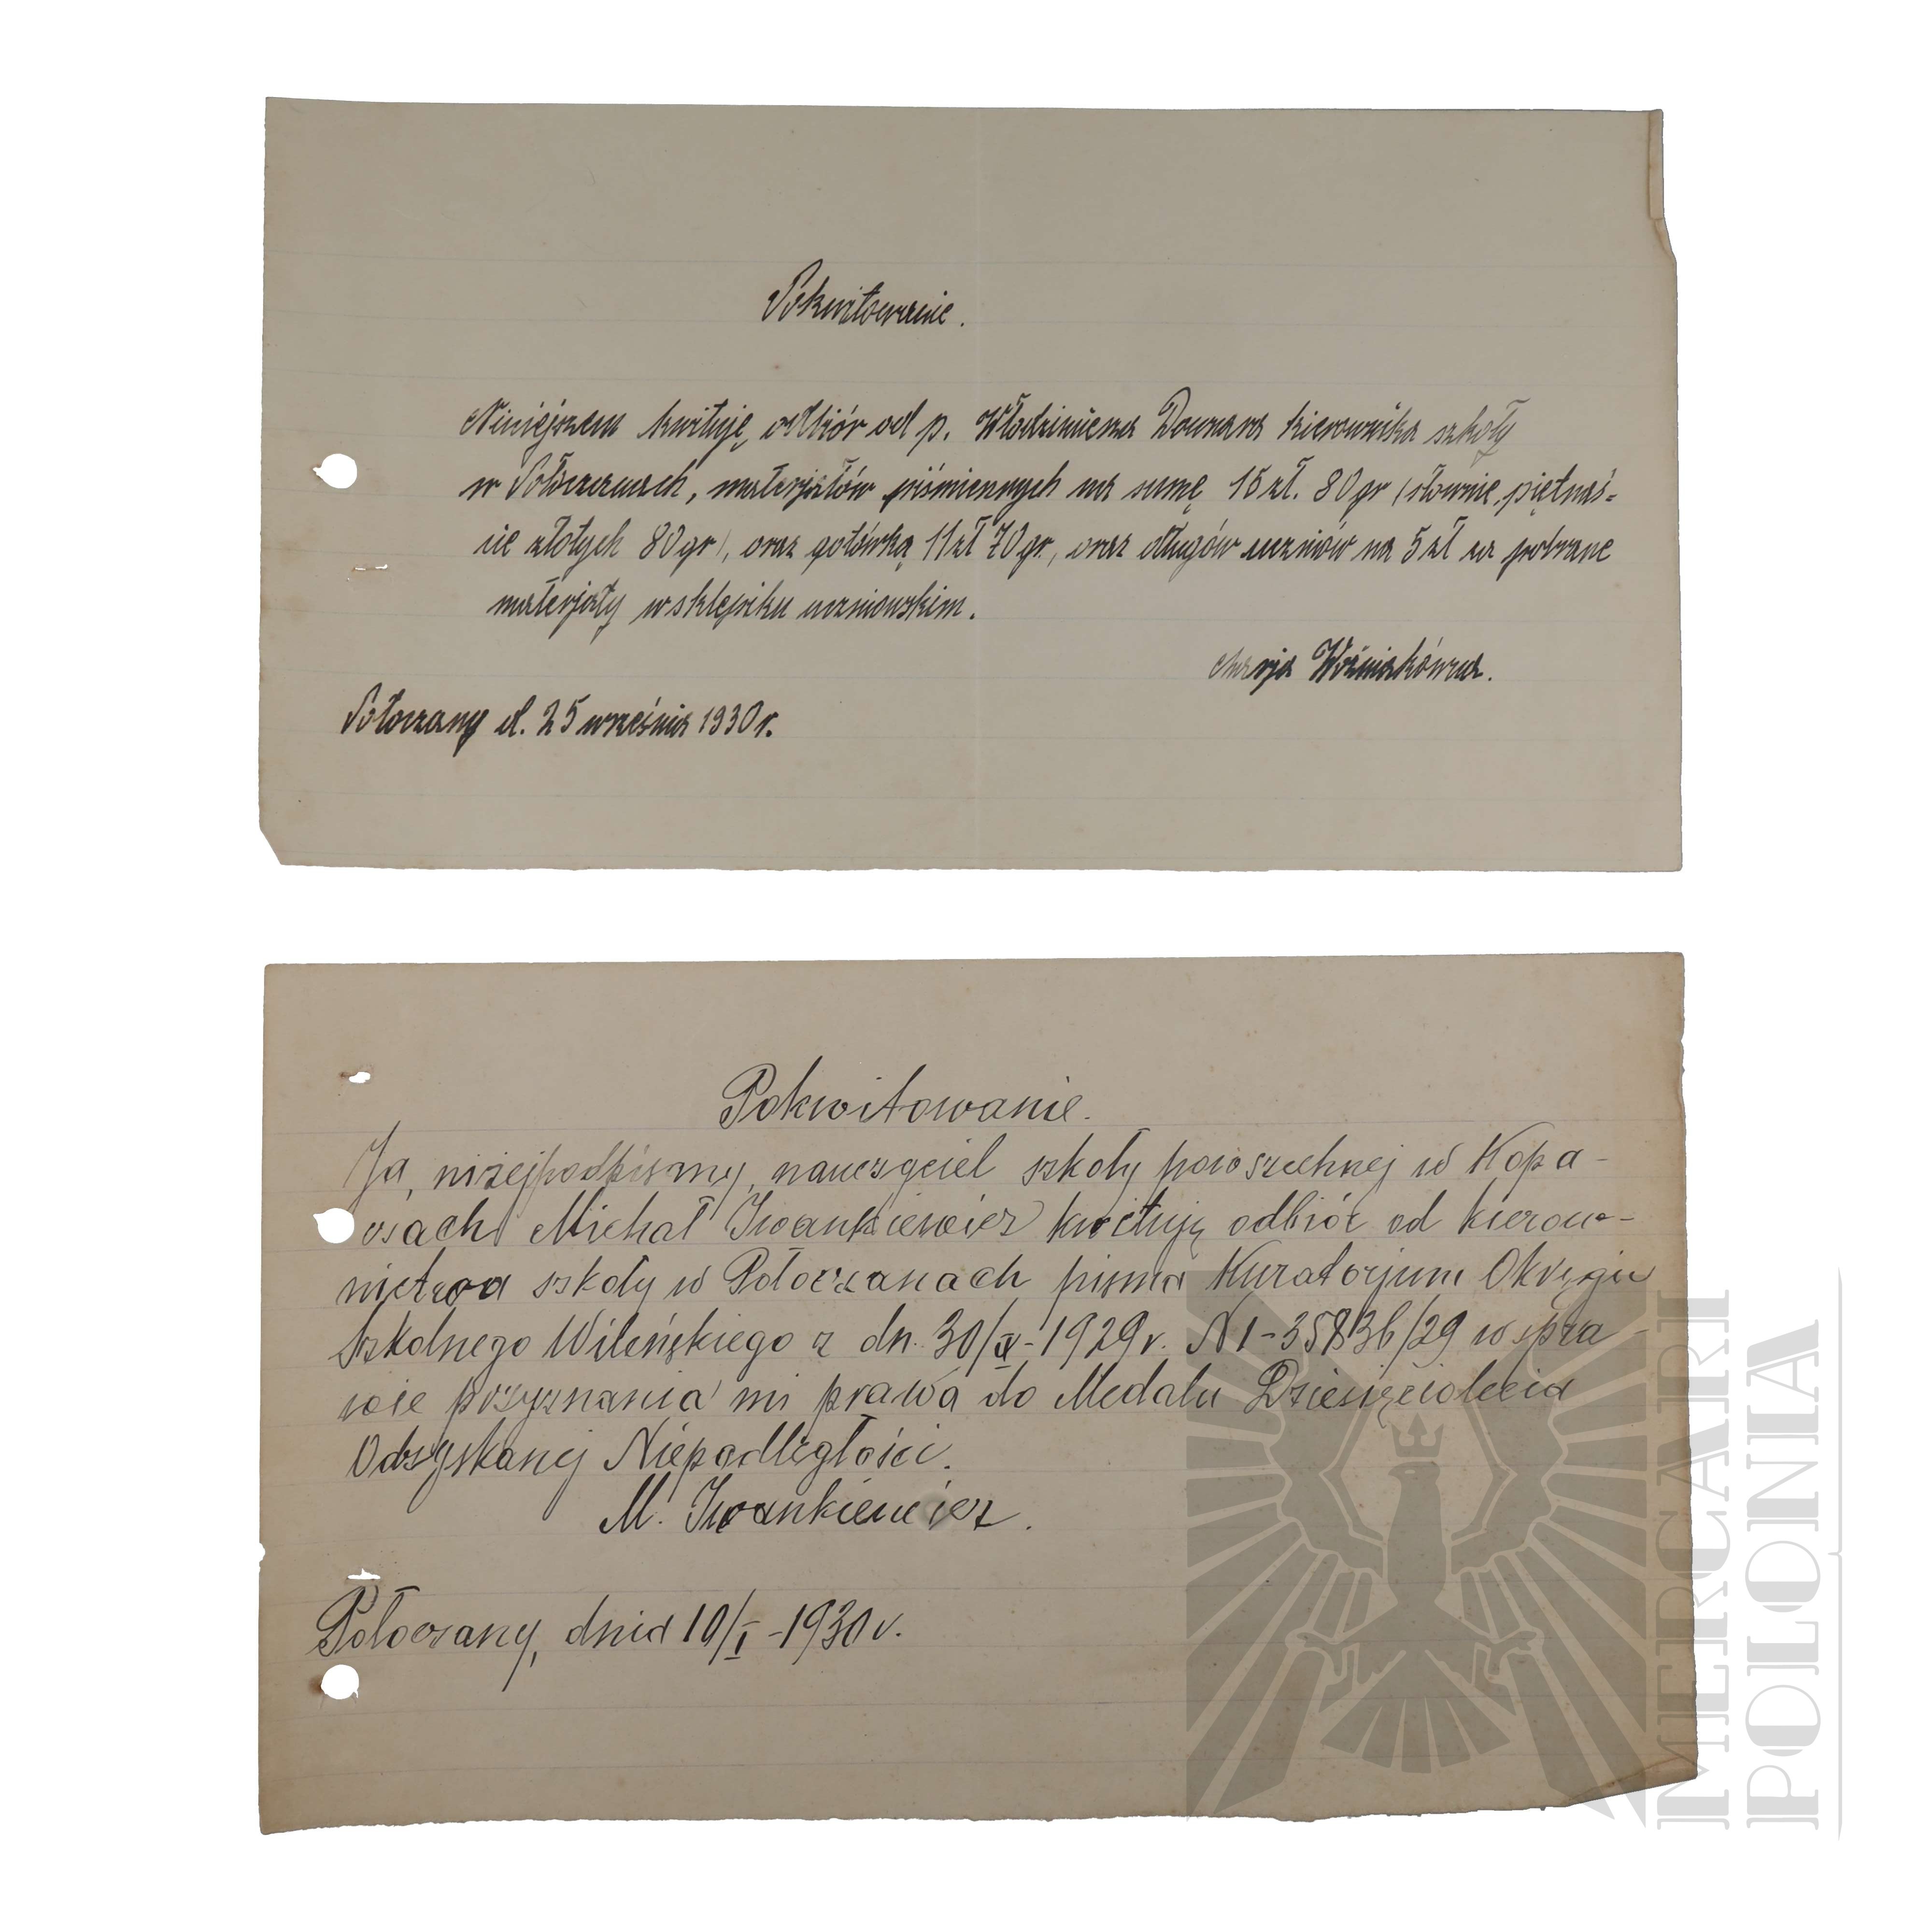 Pokwitowanie.
Niniejszem kwituję odbiór od p. Włodzimierza Downara kierownika szkoły
w Połoczanach, materjałów piśmiennych na sumę 15 zł. 80 gr (słownie piętnaś-
cie złotych 80 gr), oraz gotówką 11 zł 70 gr., oraz długów uczniów na 5 zł za pobrane
materjały w sklepiku uczniowskim.
Marja Woźniakówna.
Połoczany d. 25 września 1930 r.
Pokwitowanie.
Ja, niżejpodpisany, nauczyciel szkoły powszechnej w Kopa-
csach Michał Iwankiewicz kwituję odbiór od kierow-
nictwa szkoły w Połoczanach pisma Kuratorjum Okręgu
Szkolnego Wileńskiego z dn. 30/ -1929 r. N I-35836/29 w spra-
wie przyznania mi prawa do Medalu Dziesięciolecia
Odzyskanej Niepodległości.
M. Iwankiewicz.
Połoczany, dnia 10/I -1930 r.
IMERCARI
POLONIA